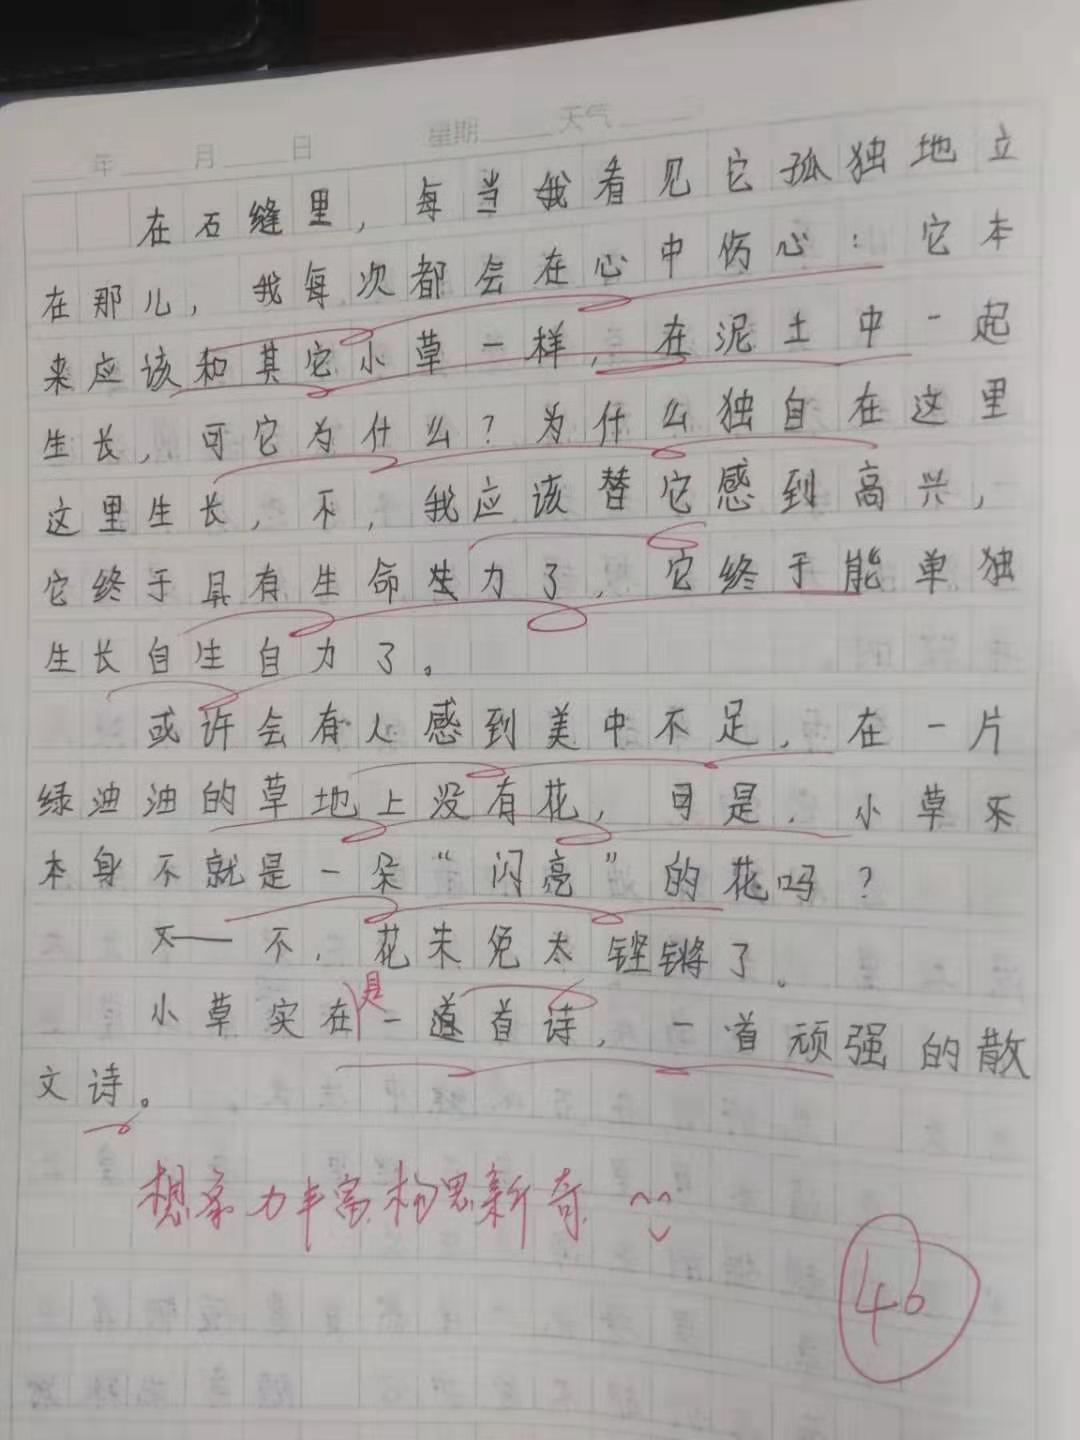 年 月 日 星期 天气
在石缝里，每当我看见它孤独地立
在那儿，我每次都会在心中伤心：它本
来应该和其它小草一样，在泥土中一起
生长，可它为什么？为什么独自在这里
这里生长，不，我应该替它感到高兴，
它终于具有生命力了，它终于能单独
生长自生自力了。
或许会有人感到美中不足，在一片
绿油油的草地上没有花，可是，小草
本身不就是一朵“闪亮”的花吗？
不——不，花未免太铿锵了。
小草实在是一首诗，一首顽强的散
文诗。
想象力丰富构思新奇
46